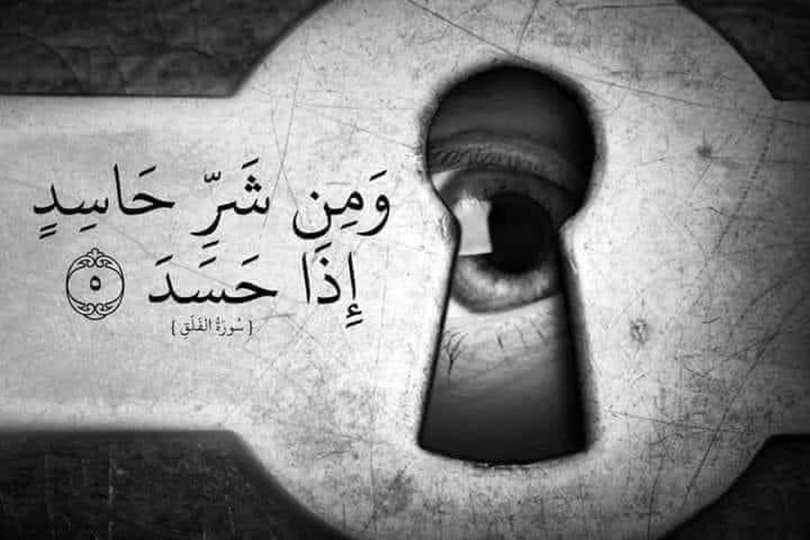 وَمِن شَرِّ حَاسِدٍ
إِذَا حَسَدَ ٥
{ سُورَةُ الفَلَقِ }